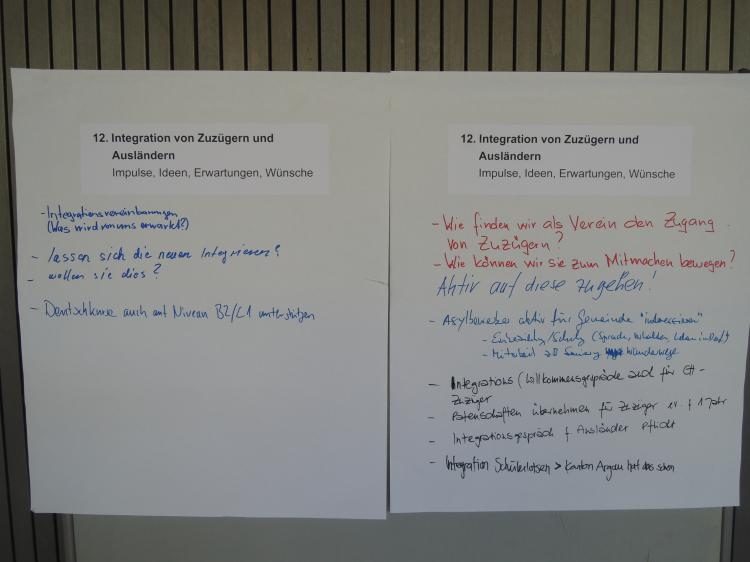 12. Integration von Zuzügern und
Ausländern
Impulse, Ideen, Erwartungen, Wünsche
- Integrationsvereinbarungen
(Was wird von uns erwartet?)
- lassen sich die neuen Integrieren?
- wollen sie dies?
- Deutschkurse auch auf Niveau B2/C1 unterstützen
12. Integration von Zuzügern und
Ausländern
Impulse, Ideen, Erwartungen, Wünsche
- Wie finden wir als Verein den Zugang
von Zuzügern?
- Wie können wir sie zum Mitmachen bewegen?
Aktiv auf diese zugehen!
- Asylbewerber aktiv für Gemeinde "interessieren"
- Schulg (Sprache,
- Mitarbeit Wanderwege
- Integrations (Willkommensgespräche auch für CH-
Zuzüger
- Patenschaften übernehmen für Zuzüger ev. f 1 Jahr
- Integrationsgespräch f Ausländer Pflicht
- Integration Schülerlotsen > Kanton Argau hat das schon